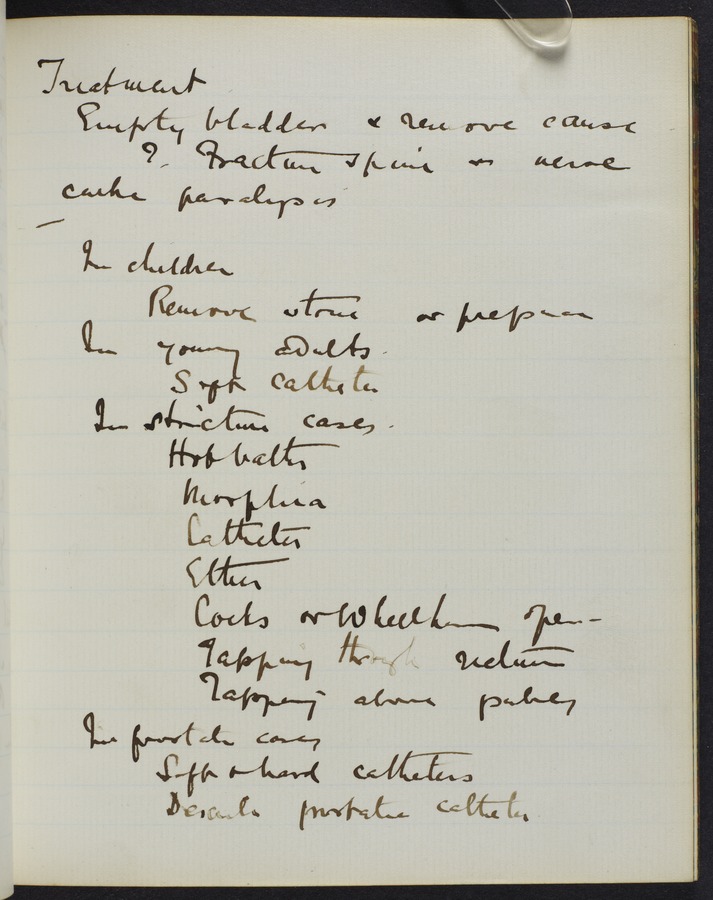 Treatment
Empty bladder & remove cause
?. Fracture spine or nerve
cathr paralysis
In children
Remove stone or prepuce
In young adults.
Soft catheter
In stricture cases.
Hot baths
Morphia
Catheter
Ether
Cocks or Wheelhouse open-
Tapping through rectum
Tapping above pubes
In prostate cases
Soft or hard catheters
prostatic catheter